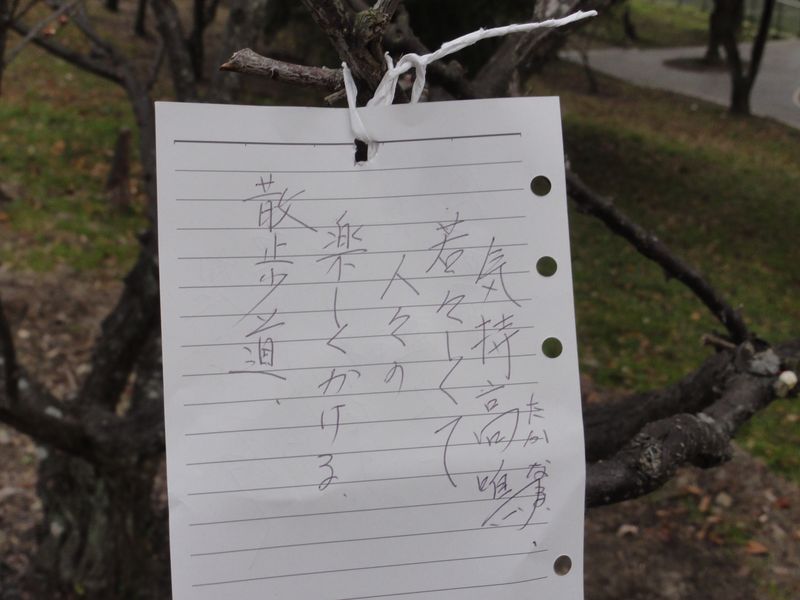 気持高
たか
若々しくて
人々の
楽しくかける
散歩道